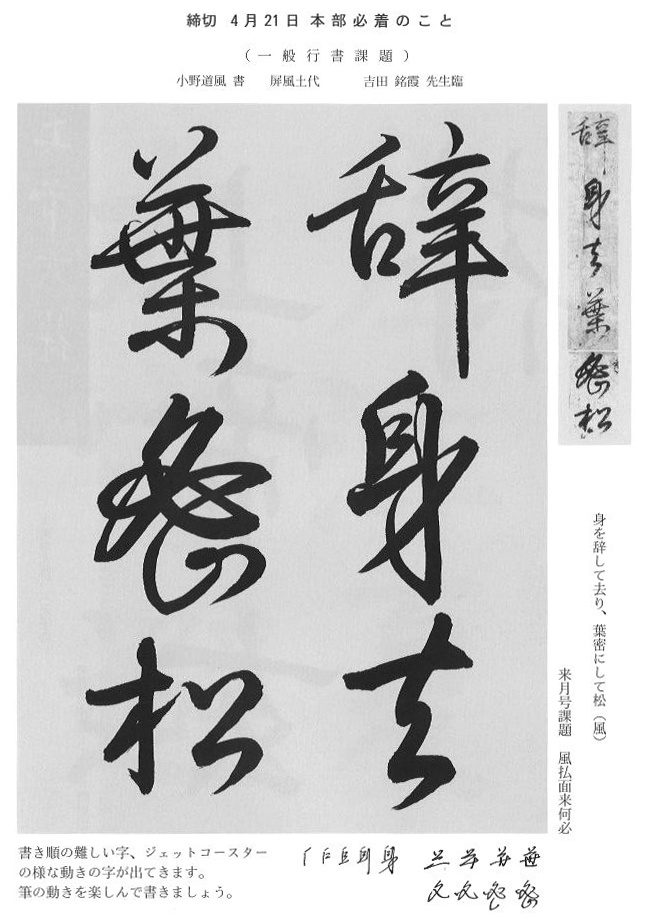 締切 4月21日 本部必着のこと
（一般行書課題）
小野道風 書 屏風土代 吉田 銘霞 先生臨
辞身去
葉密松
辞身去葉密松
身を辞して去り、葉密にして松（風）
来月号課題 風払面来何必
書き順の難しい字、ジェットコースター
の様な動きの字が出てきます。
筆の動きを楽しんで書きましょう。